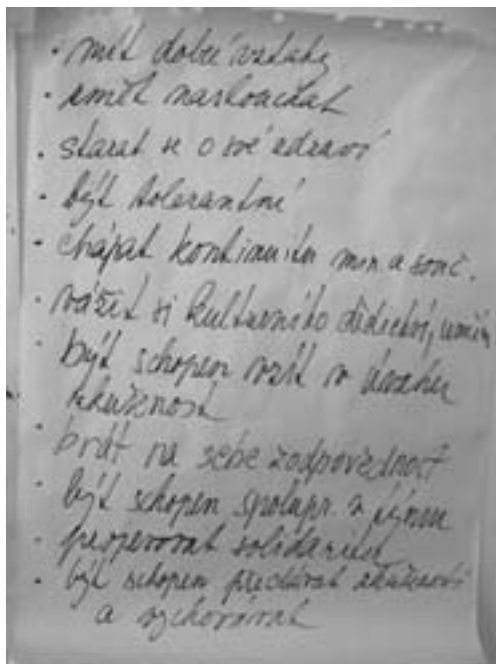 · mít dobré vztahy
· umět naslouchat
· starat se o své zdraví
· být tolerantní
· chápat kontinuitu min. a souč.
· vážit si kulturního dědictví, umění
· být schopen vzít v úvahu
zkušenost
· brát na sebe zodpovědnost
· být schopen spolupr. v týmu
· projevovat solidaritu
· být schopen předávat zkušenosti
a vychovávat